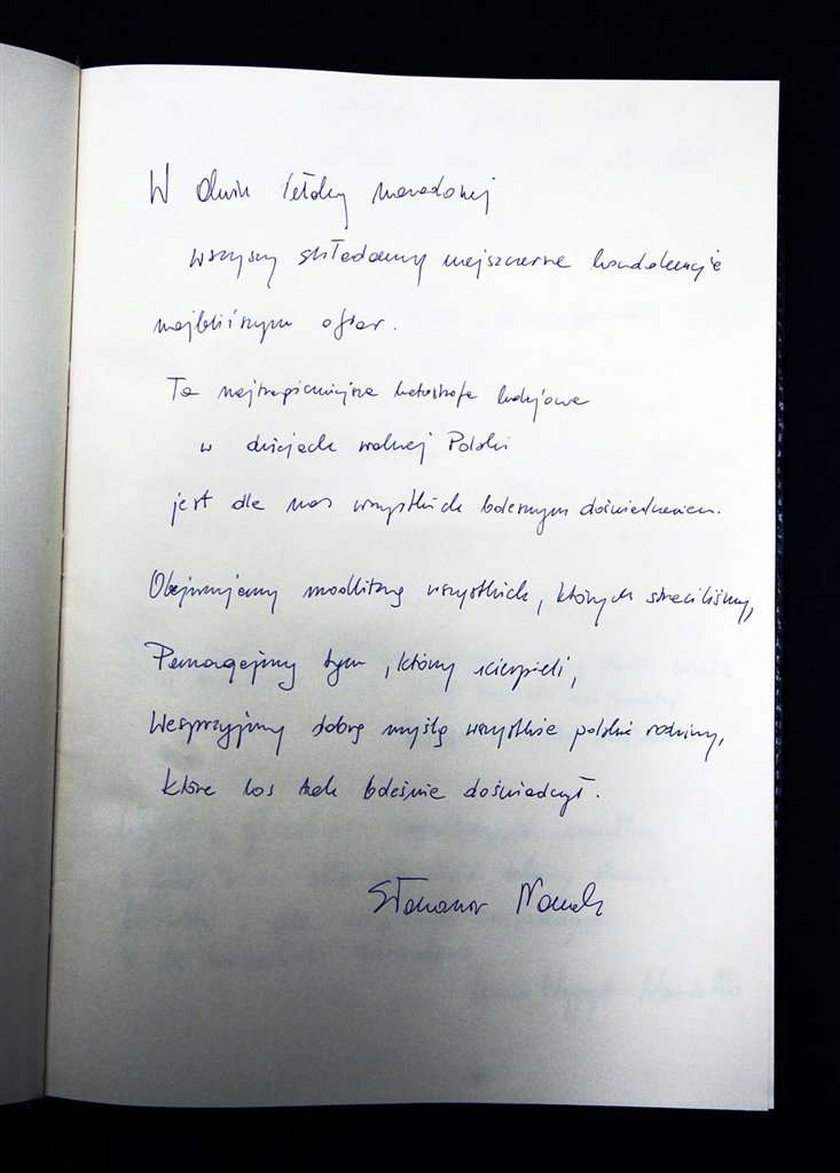 W dniu żałoby narodowej
wszyscy składamy najszczersze kondolencje
najbliższym ofiar.
Ta najtragiczniejsza katastrofa kolejowa
w dziejach wolnej Polski
jest dla nas wszystkich bolesnym doświadczeniem.
Obejmujemy modlitwą wszystkich, których straciliśmy,
Pomagajmy tym, którzy ucierpieli,
Wesprzyjmy dobrą myślą wszystkie polskie rodziny,
które los tak boleśnie doświadczył.
Sławomir Nowak